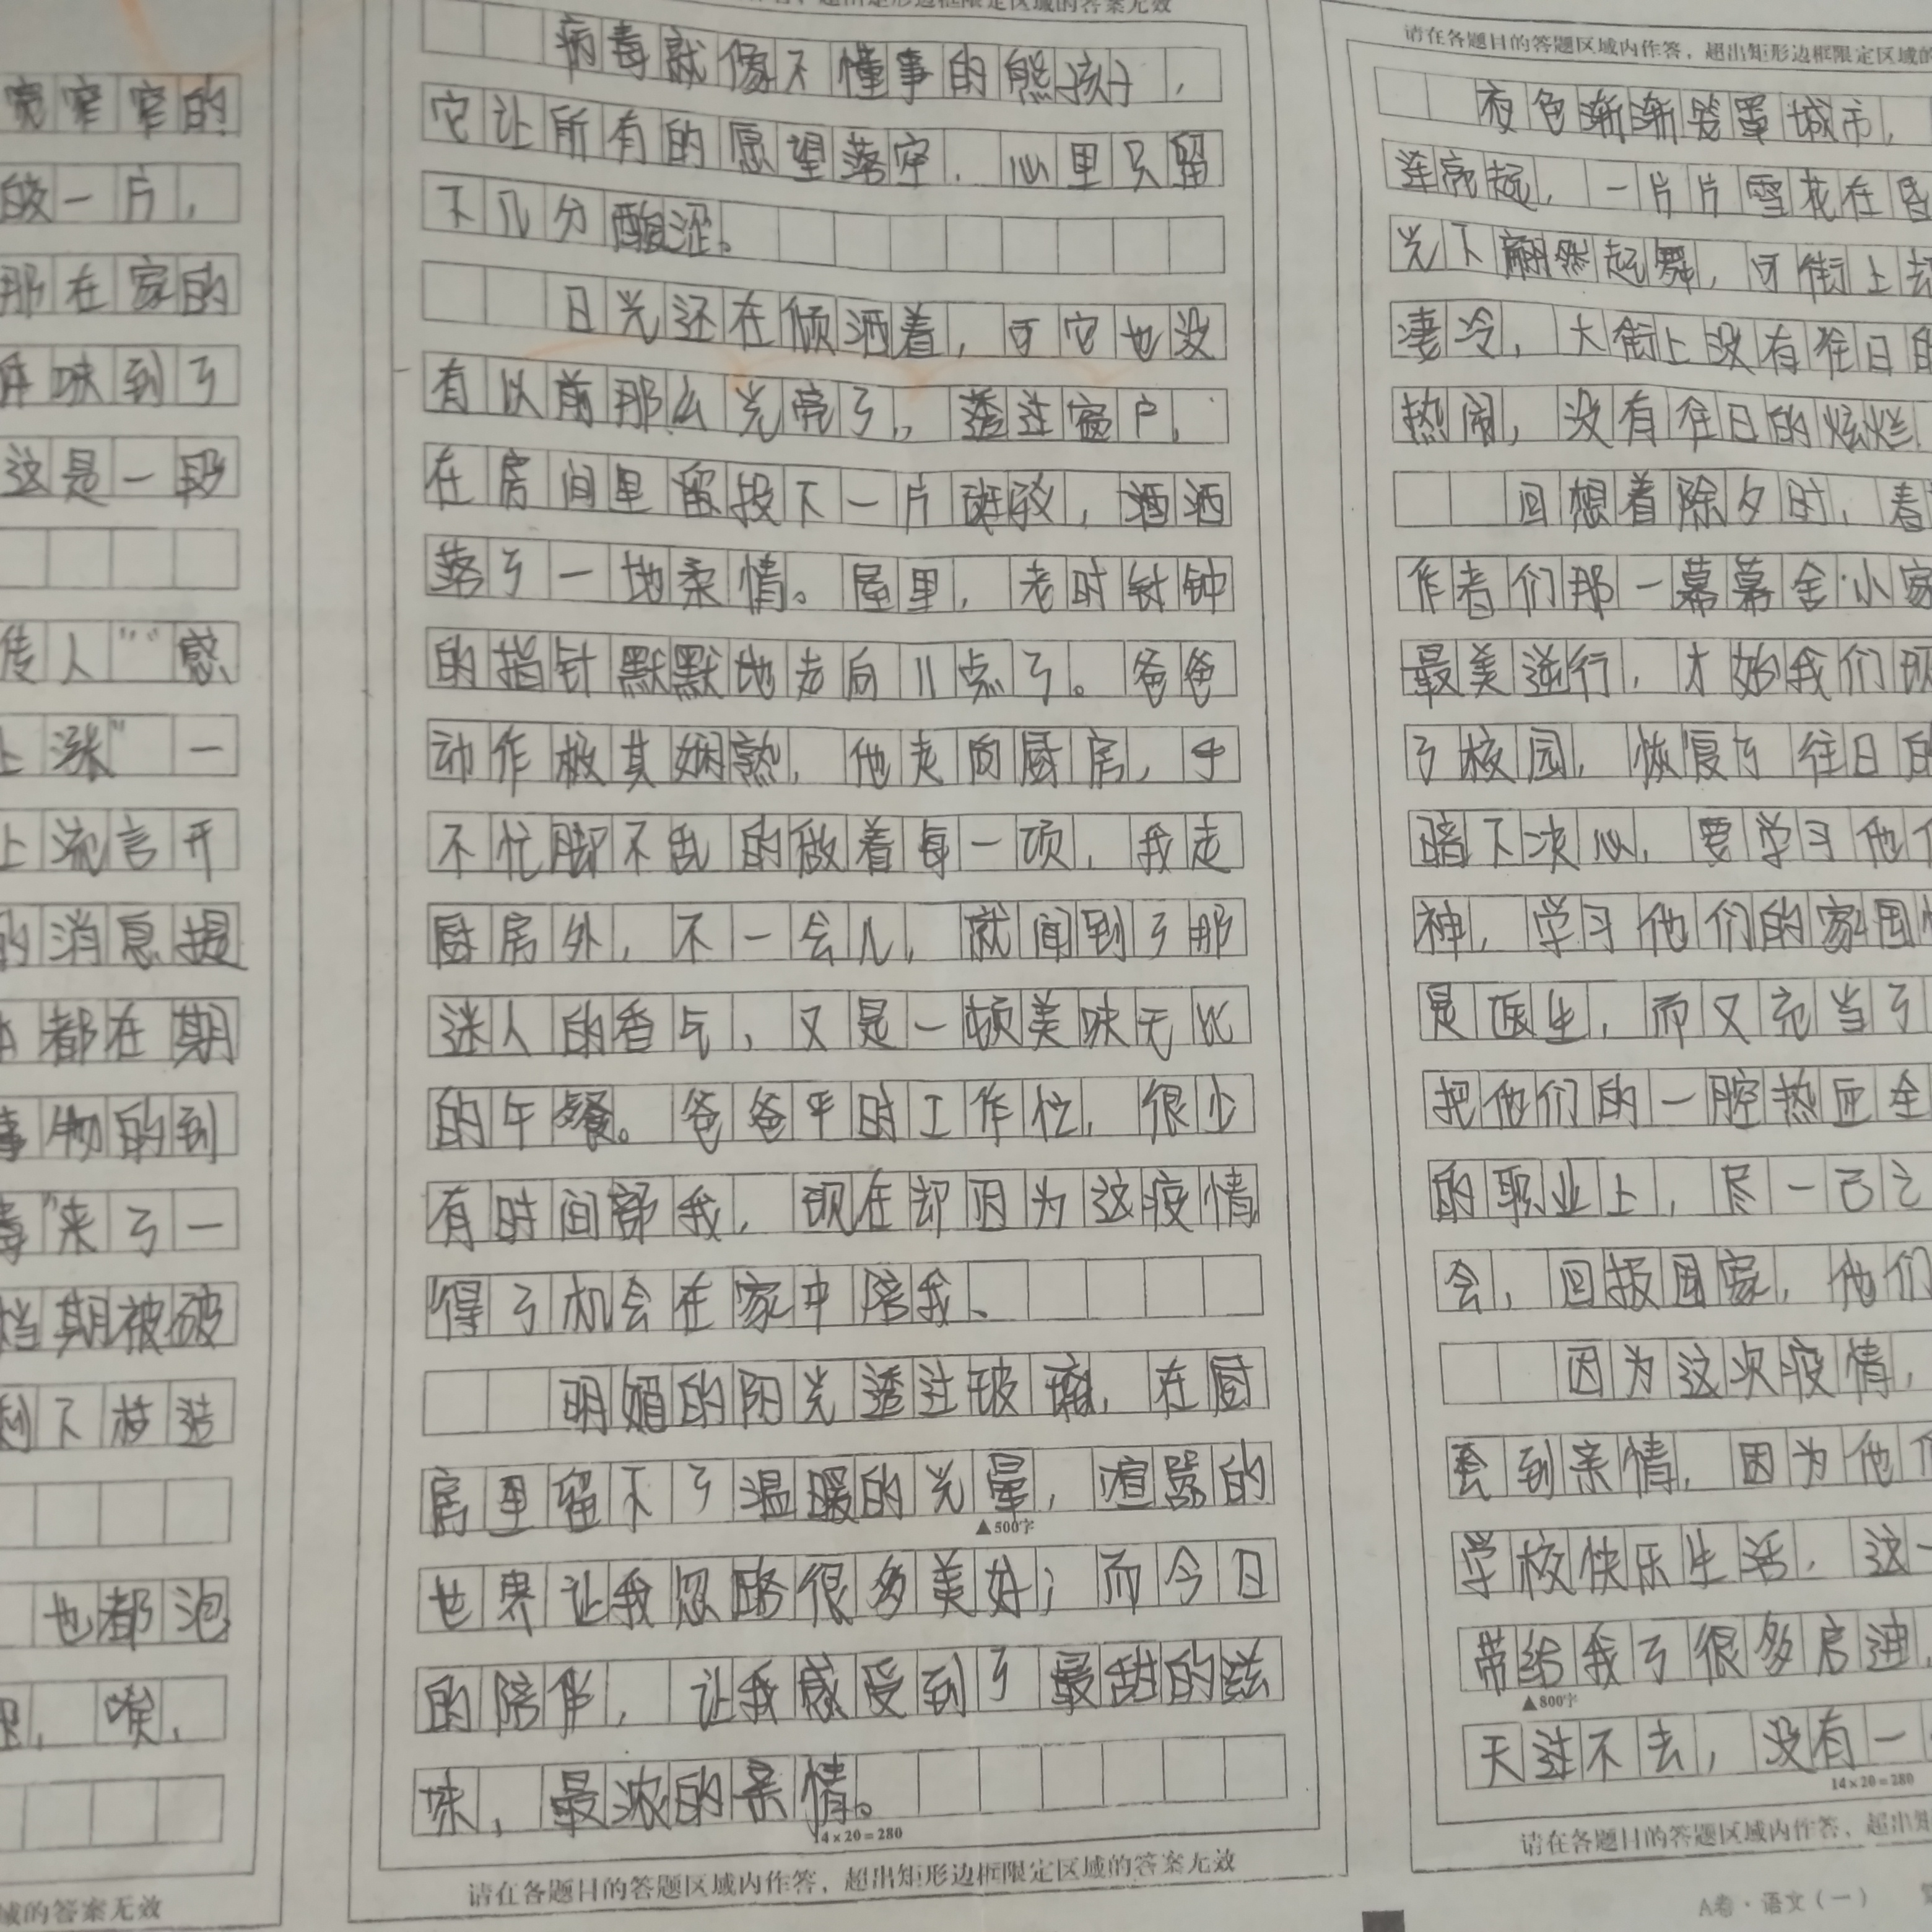 宽窄窄的
一片，
那在家的
味到了
这是一段
传人""感
上涨"一
上流言开
的消息提
都在期
事物的到
毒"来了一
档期被破
剩下枝
也都泡
唉，
域的答案无效
超出矩形边框限定区域的答案无效
病毒就像不懂事的熊孩子，
它让所有的愿望落空，心里只留
下几分酸涩。
日光还在倾洒着，可它也没
有以前那么光亮了，透过窗户，
在房间里留投下一片斑驳，洒洒
落了一地柔情。屋里，老时针钟
的指针默默地走向11点了。爸爸
动作极其娴熟，他走向厨房，手
不忙脚不乱的做着每一项，我走
厨房外，不一会儿，就闻到了那
迷人的香气，又是一顿美味无比
的午餐。爸爸平时工作忙，很少
有时间陪我，现在却因为这疫情
得了机会在家中陪我、
明媚的阳光透过玻璃，在厨
房里留下了温暖的光晕，喧嚣的
▲500字
世界让我忽略很多美好；而今日
的陪伴，让我感受到了最甜的滋
味，最浓的亲情。
14×20=280
请在各题目的答题区域内作答，超出矩形边框限定区域的答案无效
请在各题目的答题区域内作答，超出矩形边框限定区域的
夜色渐渐笼罩城市，
连亮起，一片片雪花在昏
光下翩然起舞，可街上却
凄冷，大街上没有往日的
热闹，没有往日的炫烂，
回想着除夕时，春
作者们那一幕幕舍小家
最美逆行，才始我们现
了校园，恢复了往日的
暗下决心，要学习他们
神，学习他们的家国情
是医生，而又充当了
把他们的一腔热血全
的职业上，尽一己之
会，回报国家，他们
因为这次疫情，
会到亲情，因为他们
学校快乐生活，这一
带给我了很多启迪，
▲800字
天过不去，没有一
14×20=280
请在各题目的答题区域内作答，超出矩
A卷·语文（一）